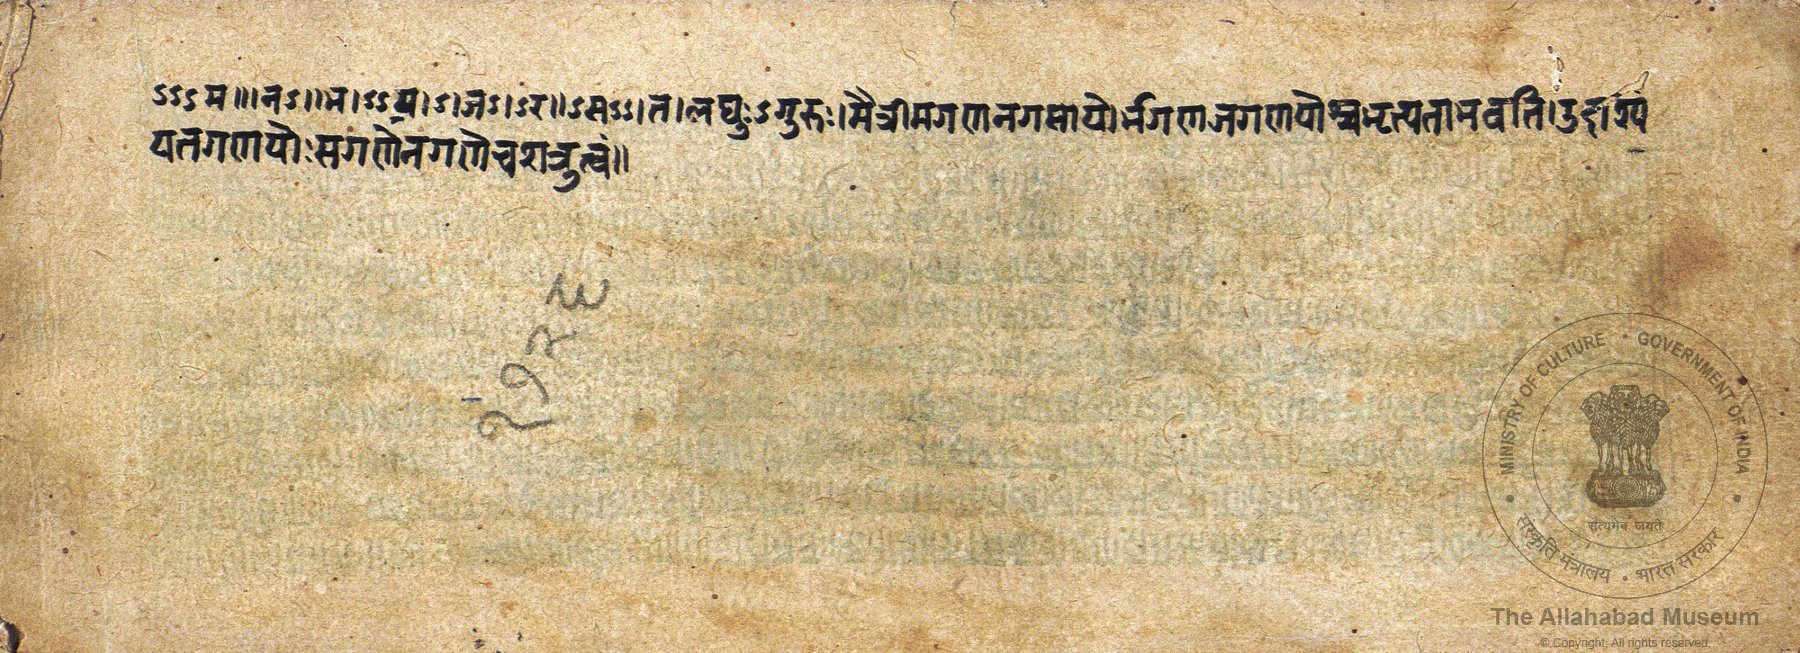 ऽऽऽ म॥।नऽ॥भ।ऽऽय।ऽ।जऽ।ऽर॥ऽसऽऽ।त।लघुःऽगुरुः।मैत्रीमगणनगसायो र्भगणजगणयोश्चभृत्यताभवति।
यतगणयोःसगणेनगणेचशत्रुत्वं॥
२१२६
MINISTRY OF CULTURE • GOVERNMENT OF INDIA
सत्यमेव जयते
संस्कृति मंत्रालय • भारत सरकार
The Allahabad Museum
© Copyright, All rights reserved